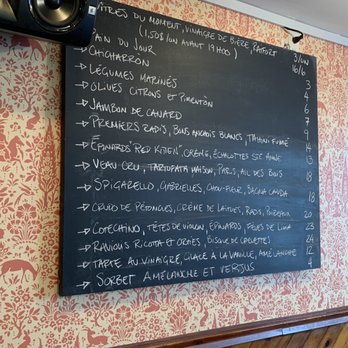 HUÎTRES DU MOMENT, VINAIGRE DE BIÈRE, RAIFORT 3/UN
(1,50$/UN AVANT 19H00) 16/6
PAIN DU JOUR 3
CHICHARRÓN 4
LÉGUMES MARINÉS 6
OLIVES CITRONS ET PIMENTÓN 7
JAMBON DE CANARD 9
PREMIERS RADIS, BONS ANCHOIS BLANCS, TAHINI FUMÉ 14
ÉPINARDS "RED KITTEN", CRÈME, ÉCHALOTTES STE ANNE 13
VEAU CRU, TARTUFATA MAISON, PARIS, AIL DES BOIS 18
SPIGARELLO, GABRIELLES, CHOU-FLEUR, BAGNA CAUDA 18
CRUDO DE PÉTONCLES, CRÈME DE LAITUES, RADIS, 20
COTECHINO, TÊTES DE VIOLON, ÉPINARDS, FÈVES DE LIMA 23
RAVIOLIS RICOTTA ET ORTIES, BISQUE DE CREVETTES 24
TARTE AU VINAIGRE, GLACE À LA VANILLE, AMÉLANCHIER 12
SORBET AMÉLANCHE ET VERJUS 4